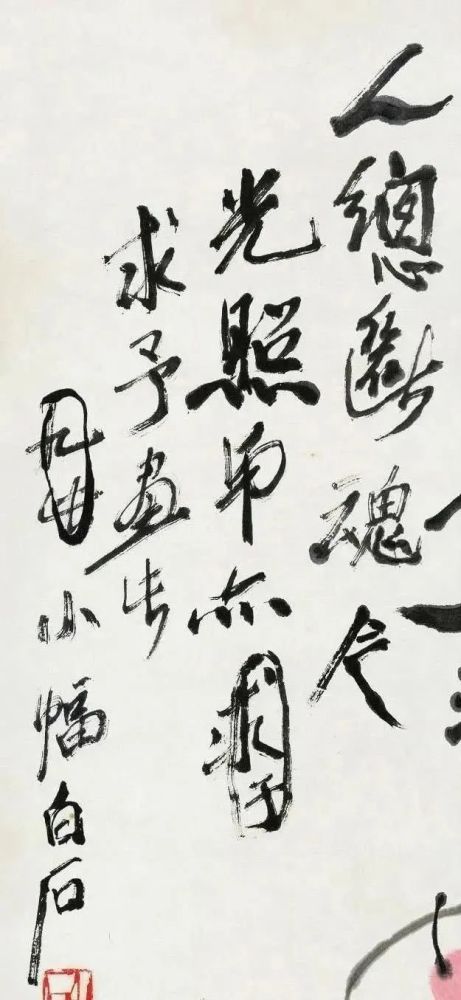 人總斷魂今
光照弟亦求予
求予畫此
小幅白石